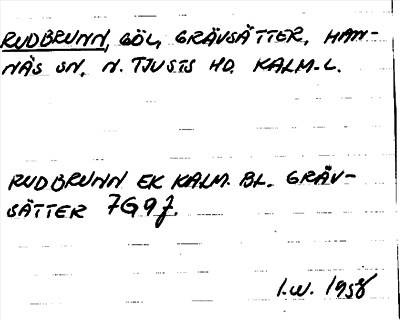 RUDBRUNN, GÖL, GRÄVSÄTTER, HAN-
NÄS SN, N. TJUSTS HD. KALM. L.
RUDBRUNN EK KALM. BL. GRÄV-
SÄTTER 7G9j.
I.W. 1958